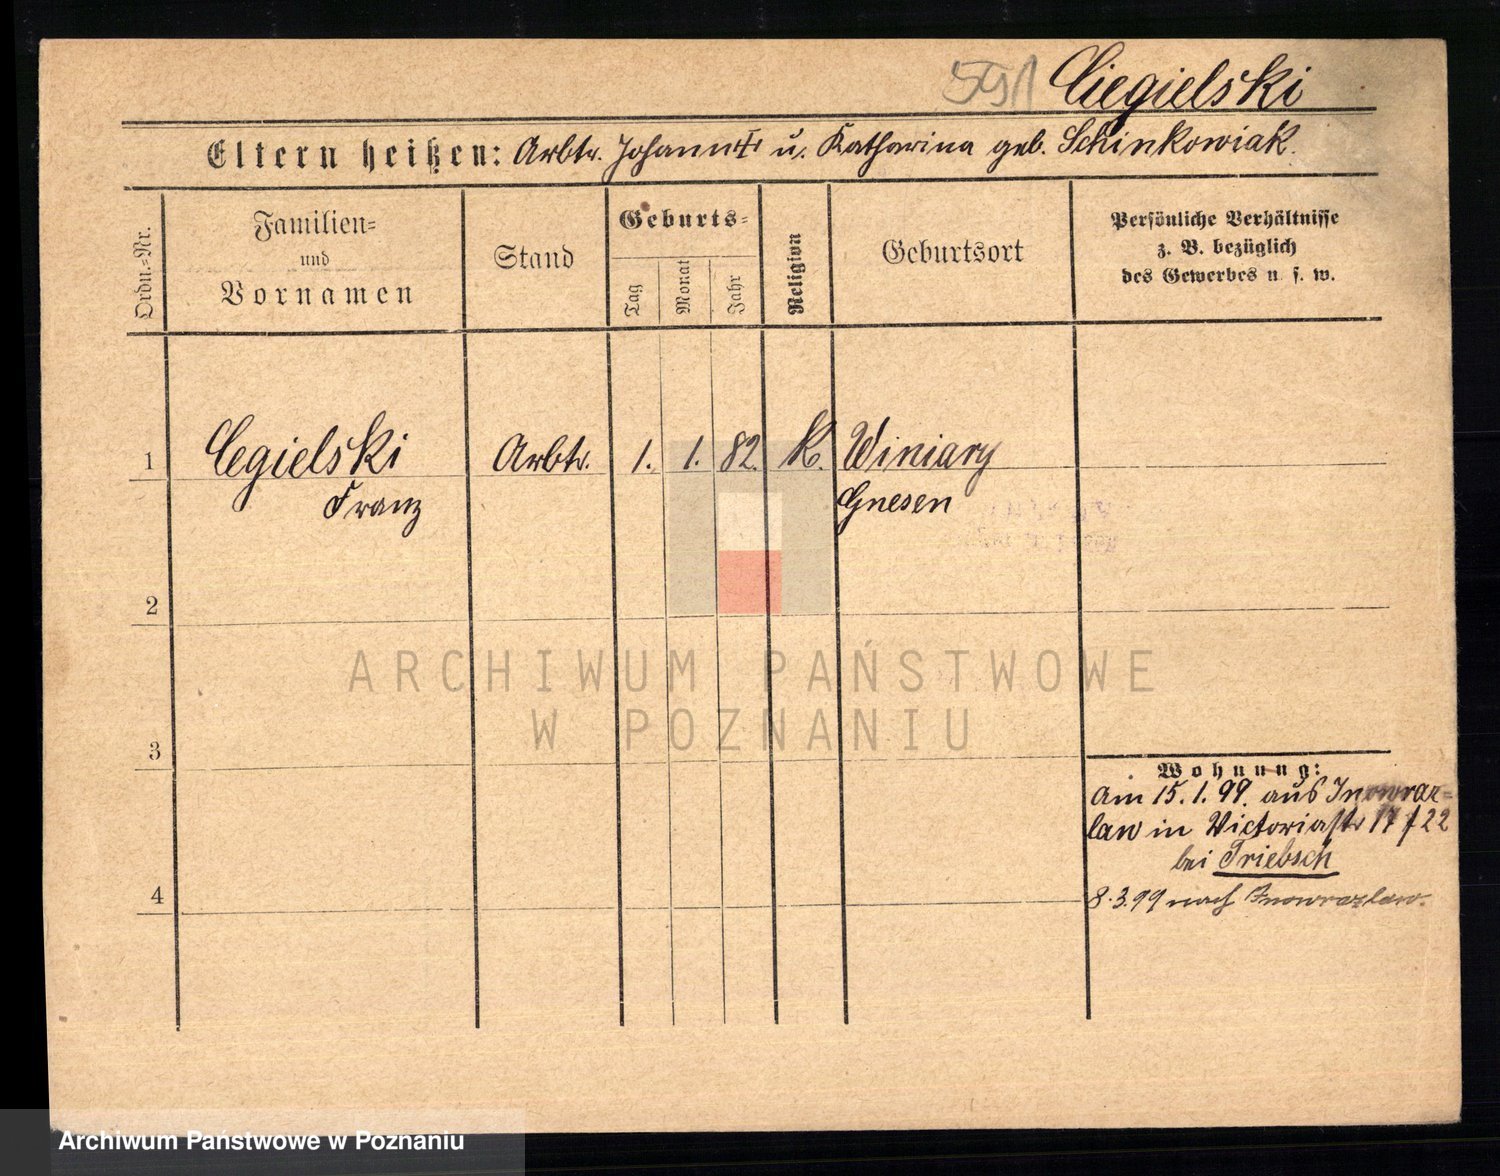 591 Ciegielski
Eltern heißen: Arbtr. Johann u. Katharina geb. Schinkowiak.
Ordn.=Nr.
Familien=
und
Vornamen
Stand
Geburts=
Tag
Monat
Jahr
Religion
Geburtsort
Persönliche Verhältnisse
z. B. bezüglich
des Gewerbes u. s. w.
1 Cegielski Arbtr. 1. 1. 82. K. Winiary
Franz Gnesen
2
ARCHIWUM PAŃSTWOWE
W POZNANIU
3
Wohnung:
Am 15.1.99. aus Inowraz=
law in Victoriastr 17 f 22
bei Triebsch
4
8.3.99 nach Inowrazlaw.
Archiwum Państwowe w Poznaniu